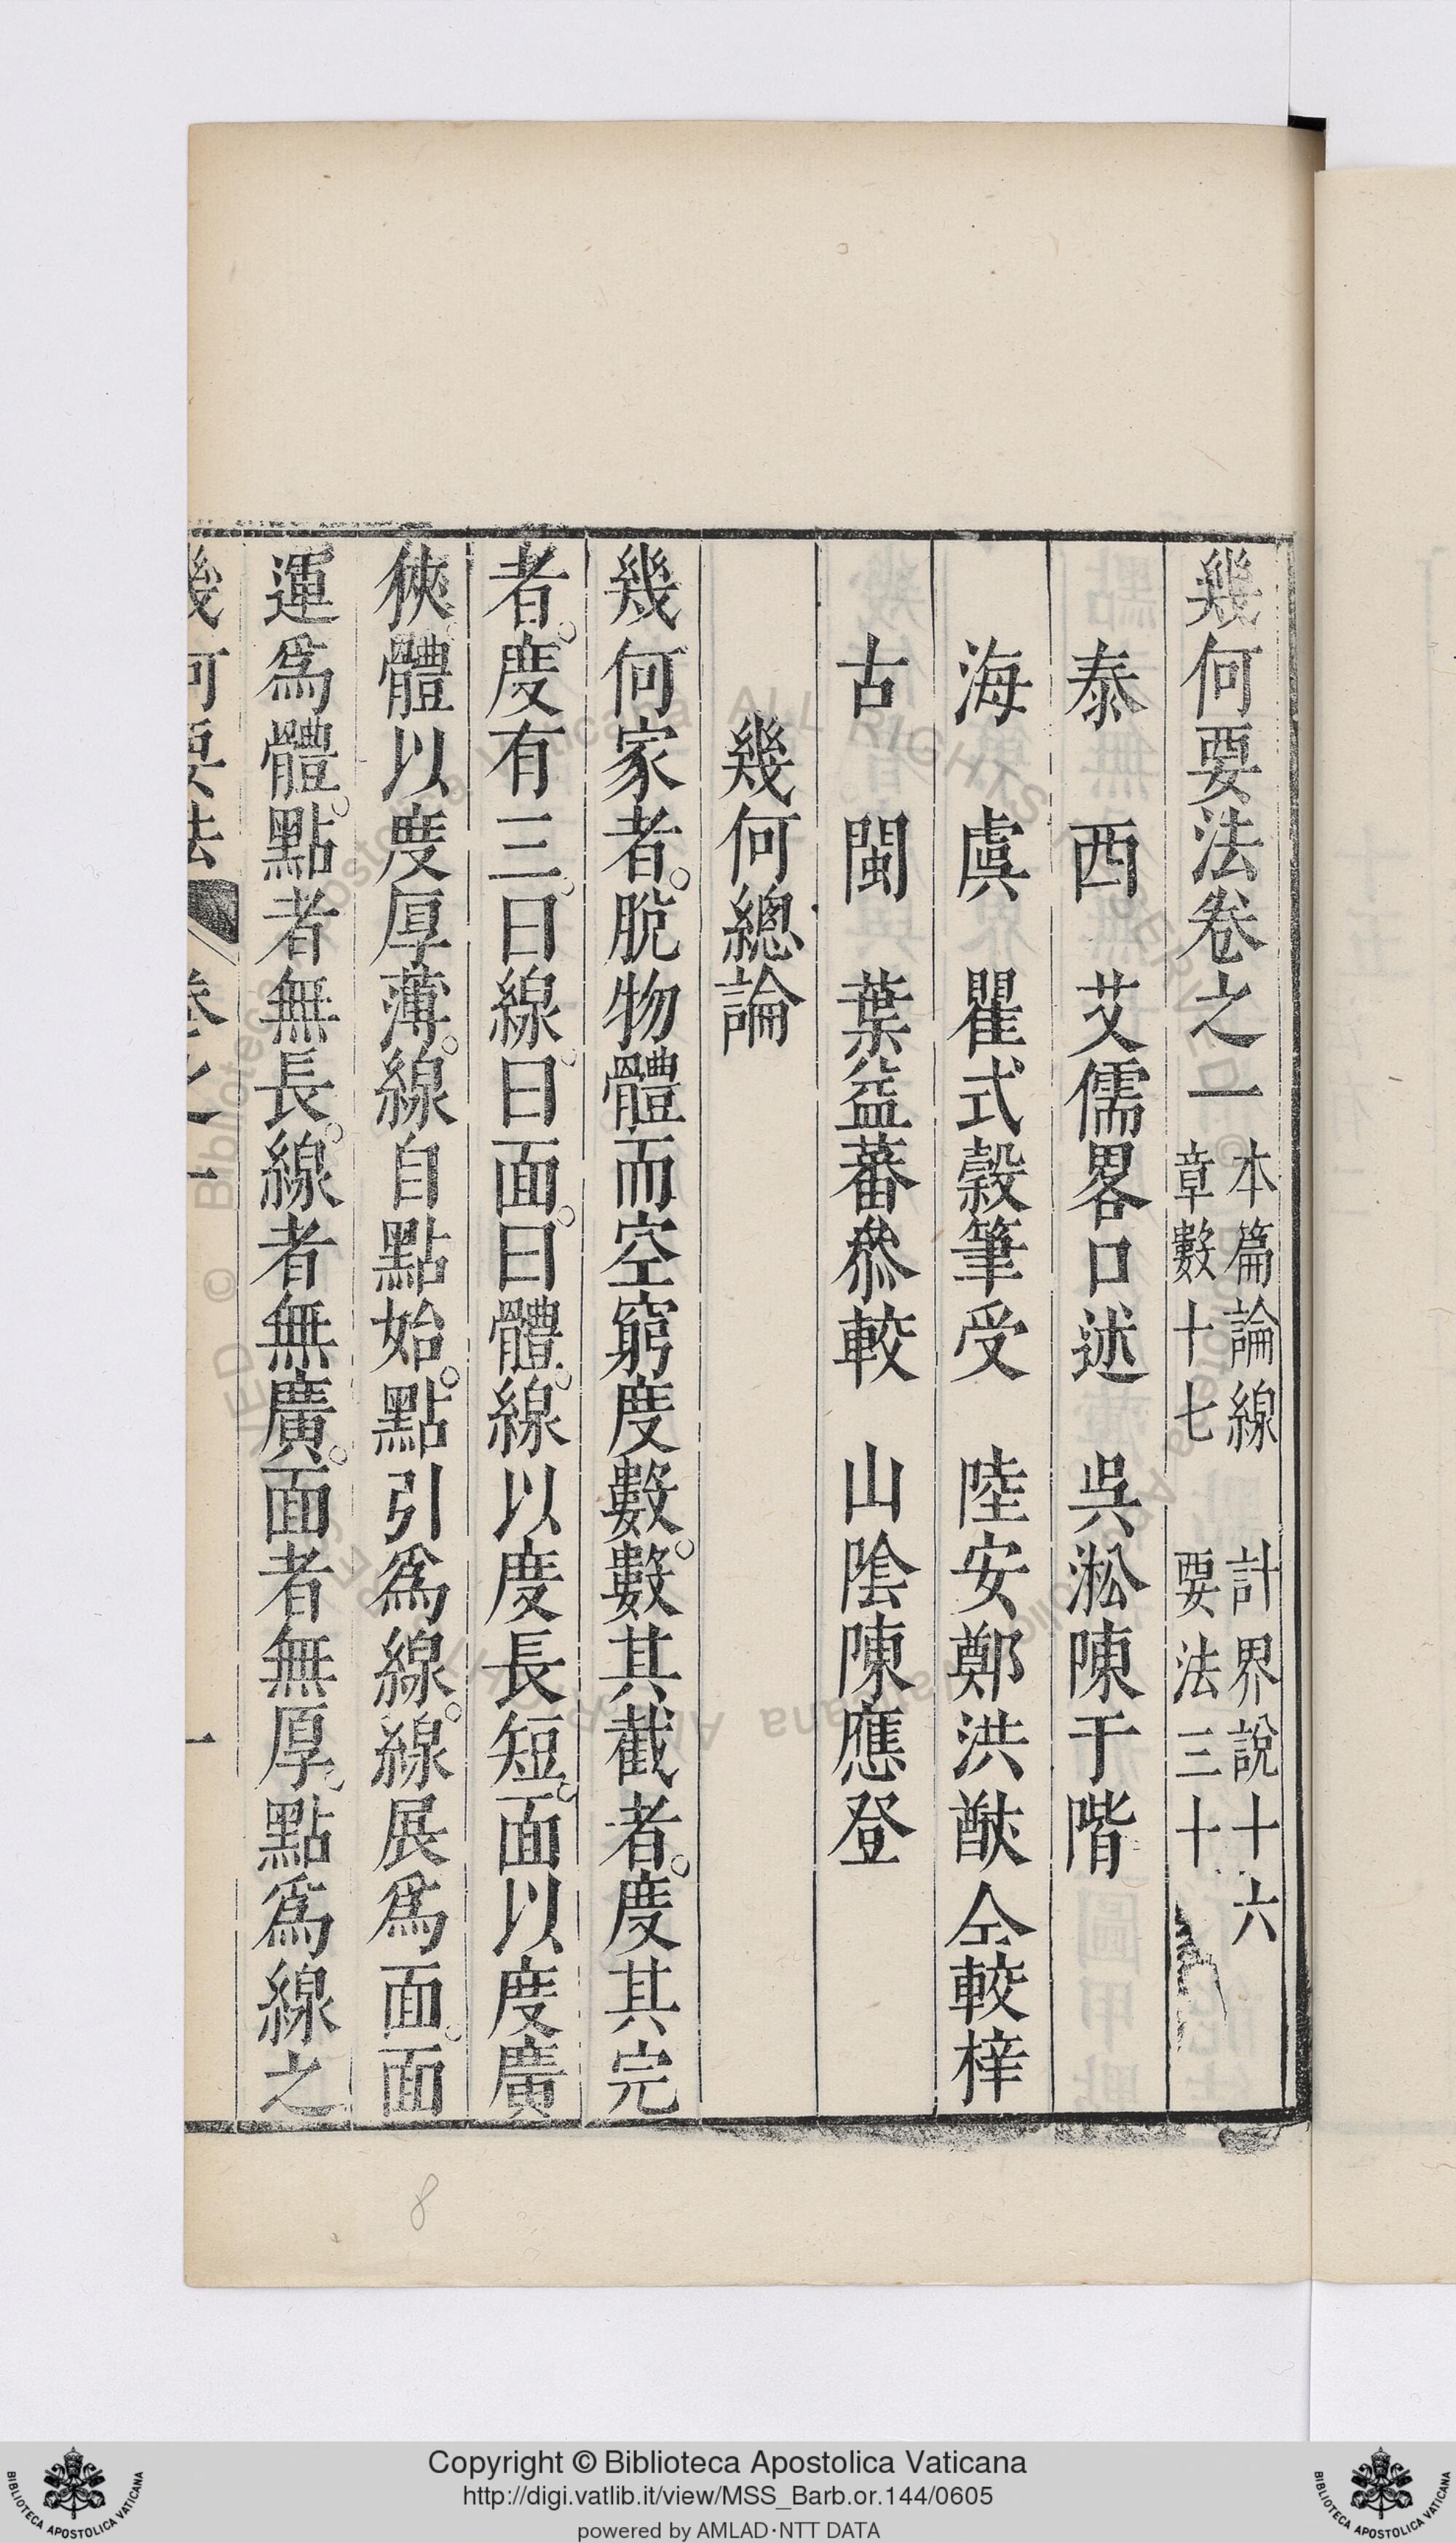 幾何要法卷之一 本篇論線 計界說十六
章數十七 要法三十
泰西 艾儒畧口述 吳淞陳于階
海虞 瞿式榖筆受 陸安鄭洪猷 仝較梓
古閩 葉益蕃叅較 山陰陳應登
幾何總論
幾何家者。脫物體而空窮度數。數其截者。度其完
者。度有三。曰線。曰面。曰體。線以度長短。面以度廣
狹。體以度厚薄。線自點始。點引爲線。線展爲面。面
運爲體。點者無長。線者無廣。面者無厚。點爲線之
幾何要法 卷之一 一
8
Copyright © Biblioteca Apostolica Vaticana
http://digi.vatlib.it/view/MSS_Barb.or.144/0605
powered by AMLAD·NTT DATA
BIBLIOTECA APOSTOLICA VATICANA
BIBLIOTECA APOSTOLICA VATICANA